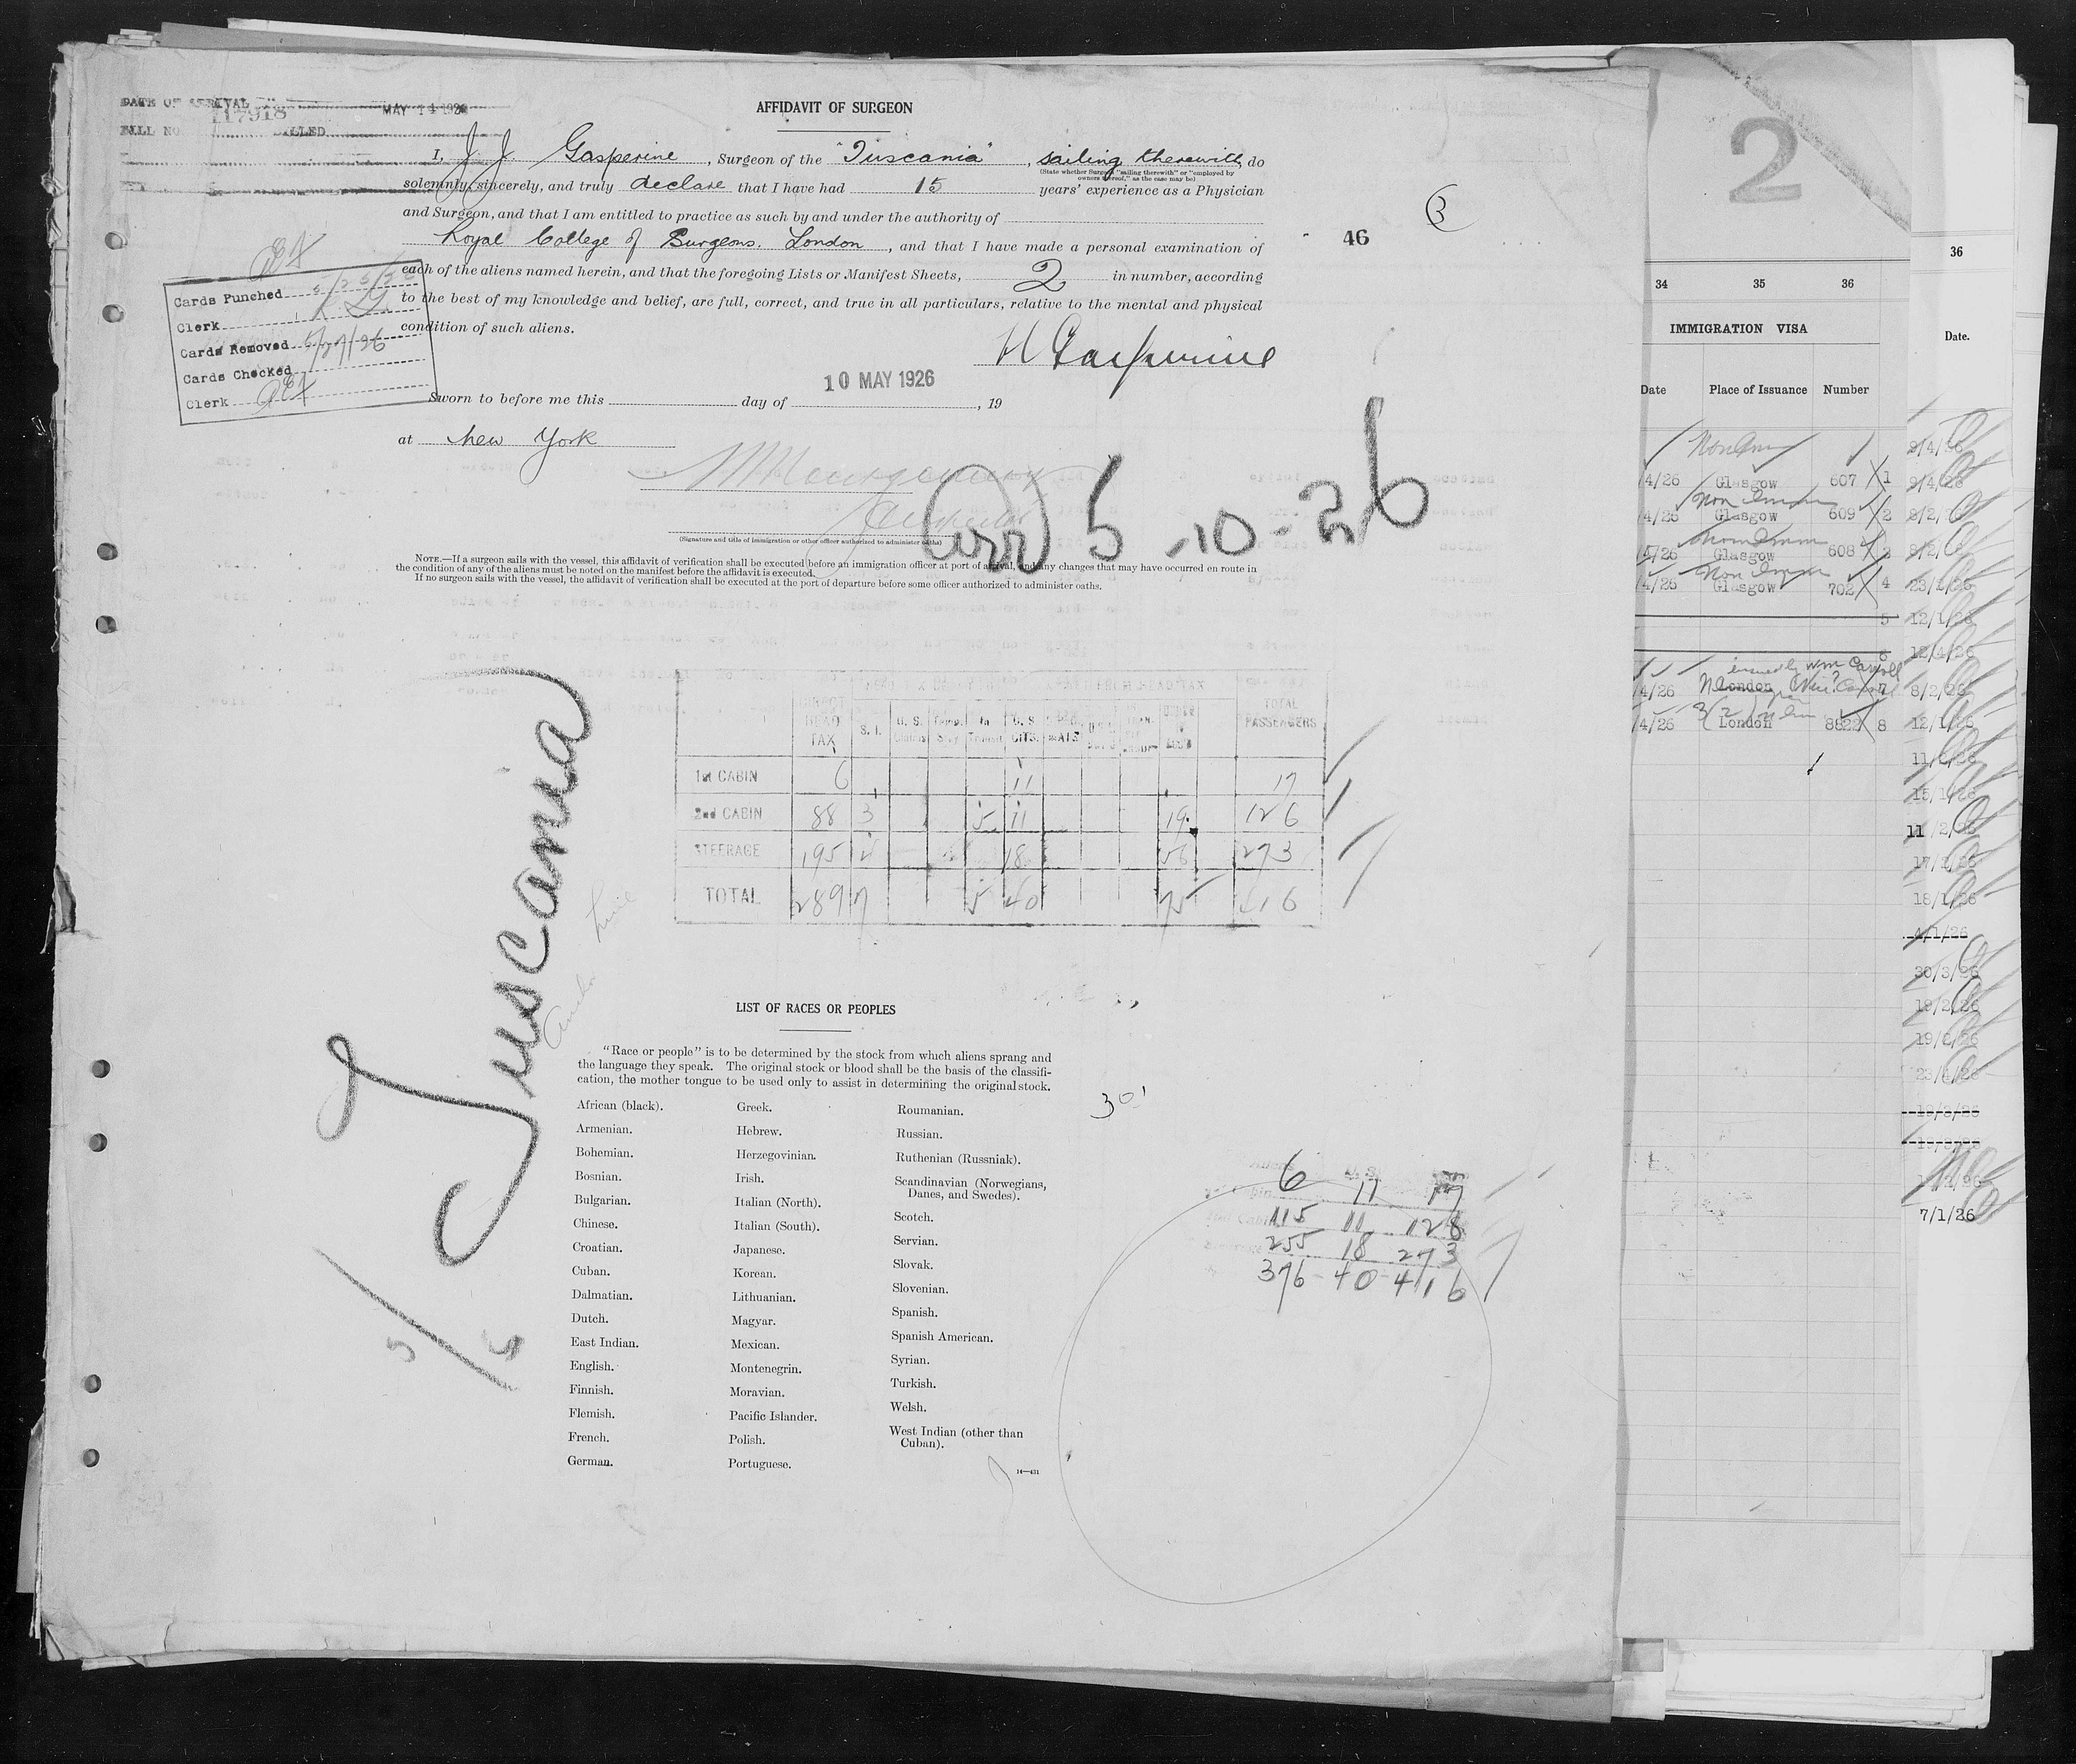 DATE OF ARRIVAL MAY 14 1926
117918
BILL NO. BILLED
AFFIDAVIT OF SURGEON
I, J. J. Gasperine, Surgeon of the "Tuscania", sailing therewith, do
(State whether Surgeon "sailing therewith" or "employed by
owners thereof," as the case may be)
solemnly, sincerely, and truly declare that I have had 15 years' experience as a Physician
and Surgeon, and that I am entitled to practice as such by and under the authority of
Royal College of Surgeons. London, and that I have made a personal examination of
each of the aliens named herein, and that the foregoing Lists or Manifest Sheets, 2 in number, according
to the best of my knowledge and belief, are full, correct, and true in all particulars, relative to the mental and physical
condition of such aliens.
Gasperine
3
46
Cards Punched
Clerk
Cards Removed 5/27/26
Cards Checked
Clerk
10 MAY 1926
Sworn to before me this day of , 19
at New York
Arr 5-10-26
(Signature and title of immigration or other officer authorized to administer oaths)
NOTE.—If a surgeon sails with the vessel, this affidavit of verification shall be executed before an immigration officer at port of arrival, and any changes that may have occurred en route in
the condition of any of the aliens must be noted on the manifest before the affidavit is executed.
If no surgeon sails with the vessel, the affidavit of verification shall be executed at the port of departure before some officer authorized to administer oaths.
HEAD TAX S. I. U. S. In Transit U. S. CITS. UNDER TOTAL PASSENGERS
1st CABIN 6 11 17
2nd CABIN 88 3 5 11 19 126
STEERAGE 195 4 18 56 273
TOTAL 289 7 5 40 75 416
S/S Tuscania
Anchor Line
LIST OF RACES OR PEOPLES
"Race or people" is to be determined by the stock from which aliens sprang and
the language they speak. The original stock or blood shall be the basis of the classifi-
cation, the mother tongue to be used only to assist in determining the original stock.
African (black).
Armenian.
Bohemian.
Bosnian.
Bulgarian.
Chinese.
Croatian.
Cuban.
Dalmatian.
Dutch.
East Indian.
English.
Finnish.
Flemish.
French.
German.
Greek.
Hebrew.
Herzegovinian.
Irish.
Italian (North).
Italian (South).
Japanese.
Korean.
Lithuanian.
Magyar.
Mexican.
Montenegrin.
Moravian.
Pacific Islander.
Polish.
Portuguese.
Roumanian.
Russian.
Ruthenian (Russniak).
Scandinavian (Norwegians,
Danes, and Swedes).
Scotch.
Servian.
Slovak.
Slovenian.
Spanish.
Spanish American.
Syrian.
Turkish.
Welsh.
West Indian (other than
Cuban).
14—431
301
Aliens U. S.
6 11 17
115 11 128
255 18 273
376 - 40 - 416
2
34 35 36
IMMIGRATION VISA
Date Place of Issuance Number
Non Imm
4/26 Glasgow 607 1
Non Imm
4/26 Glasgow 609 2
Non Imm
4/26 Glasgow 608 3
Non Imm
4/26 Glasgow 702 4
5
6
issued by Wm Carroll
4/26 London 7
4/26 London 8822 8
36
Date.
9/4/26
9/4/26
8/2/26
8/2/26
23/1/26
12/1/26
12/4/26
8/2/26
12/1/26
15/1/26
11/2/26
17/2/26
18/1/26
4/1/26
30/3/26
19/2/26
7/1/26